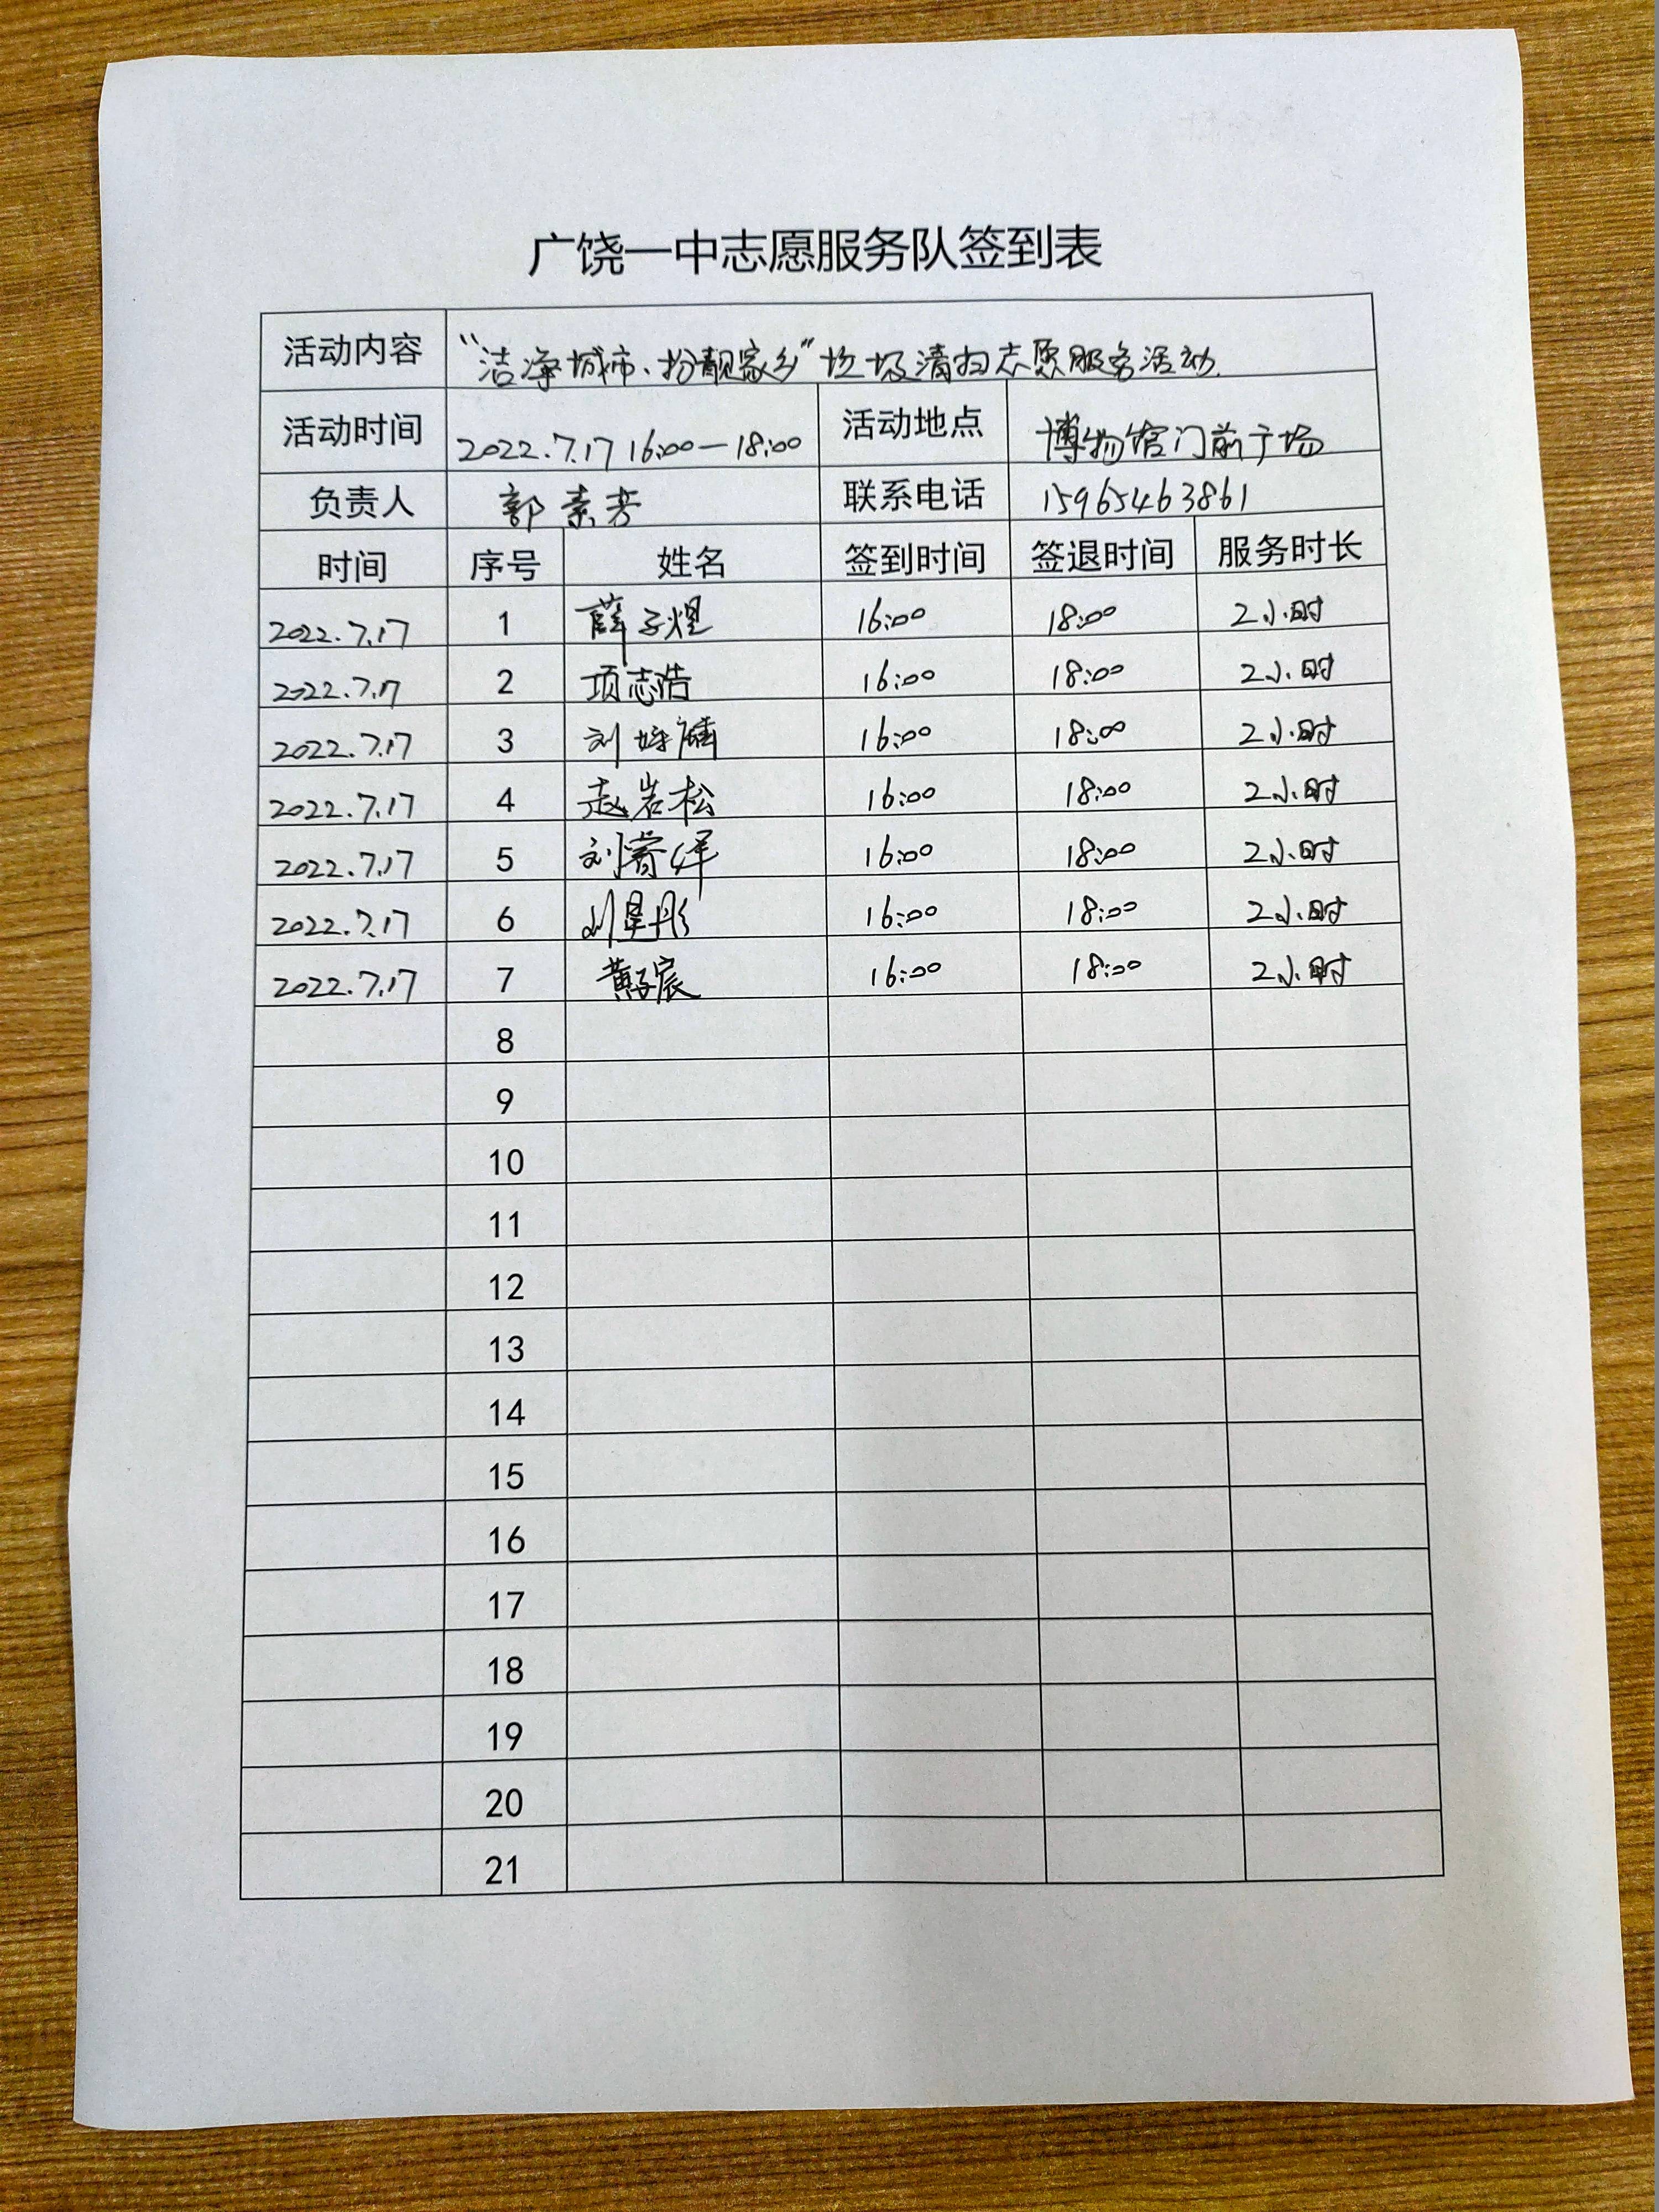 广饶一中志愿服务队签到表
活动内容 “洁净城市、扮靓家乡”垃圾清扫志愿服务活动.
活动时间 2022.7.17 16:00—18:00 活动地点 博物馆门前广场
负责人 郭素芳 联系电话 15965463861
时间 序号 姓名 签到时间 签退时间 服务时长
2022.7.17 1 薛子煜 16:00 18:00 2小时
2022.7.17 2 项志浩 16:00 18:00 2小时
2022.7.17 3 刘 16:00 18:00 2小时
2022.7.17 4 赵岩松 16:00 18:00 2小时
2022.7.17 5 刘 16:00 18:00 2小时
2022.7.17 6 刘星彤 16:00 18:00 2小时
2022.7.17 7 黄子宸 16:00 18:00 2小时
8
9
10
11
12
13
14
15
16
17
18
19
20
21